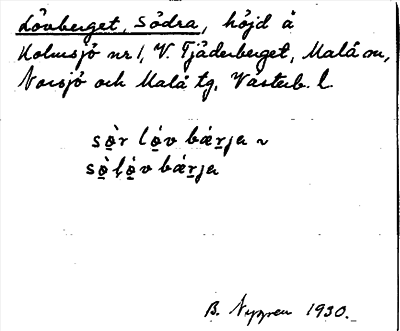 Lövberget, Södra, höjd å
Holmsjö nr 1, V. Tjäderberget, Malå sn,
Norsjö och Malå tg, Västerb. l.
sö̀r lö́v bǽrja ~
sö̀lö́v bǽrja
B. Nygren 1930.